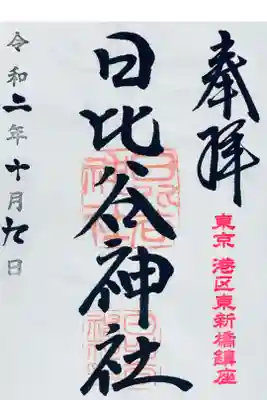 奉拜
東京 港区東新橋鎮座
日比谷神社
令和二年十月九日